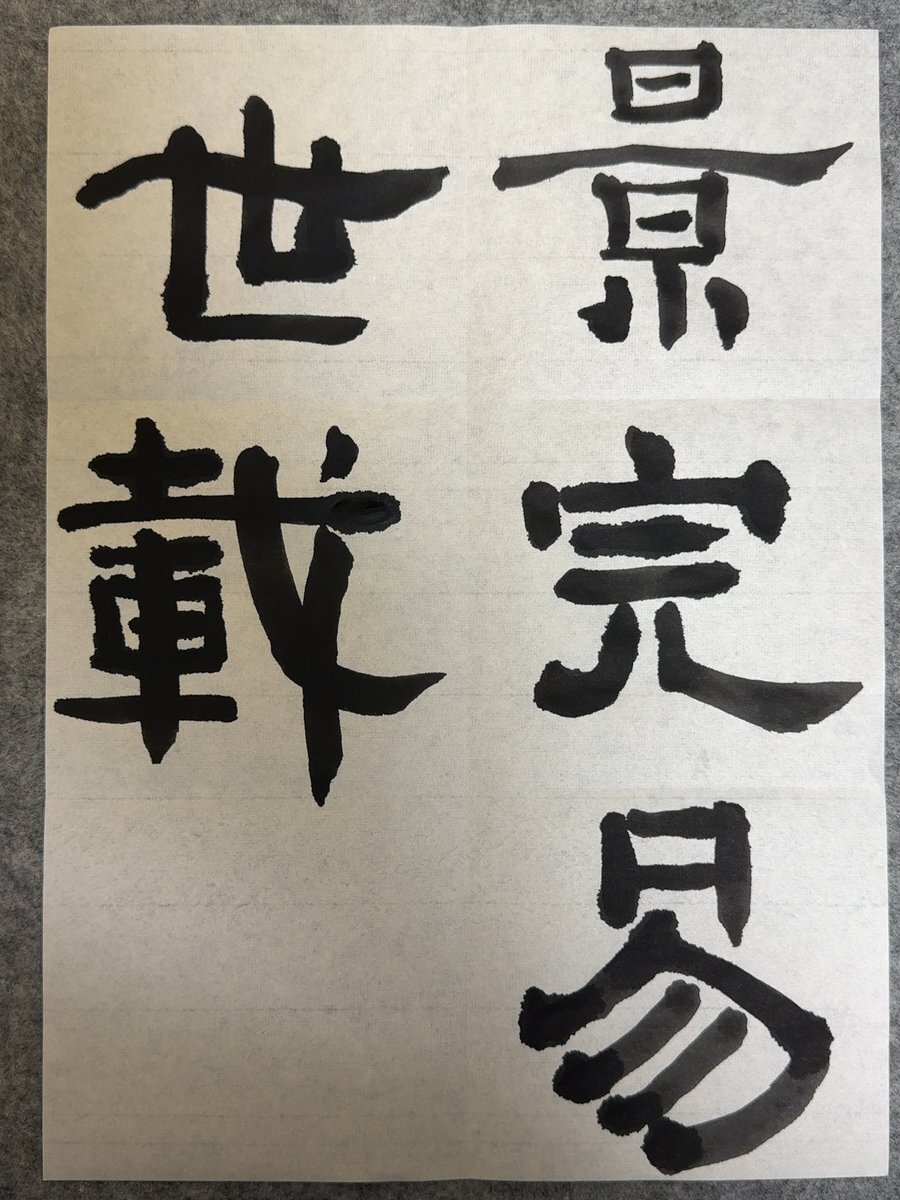 景完易
世載